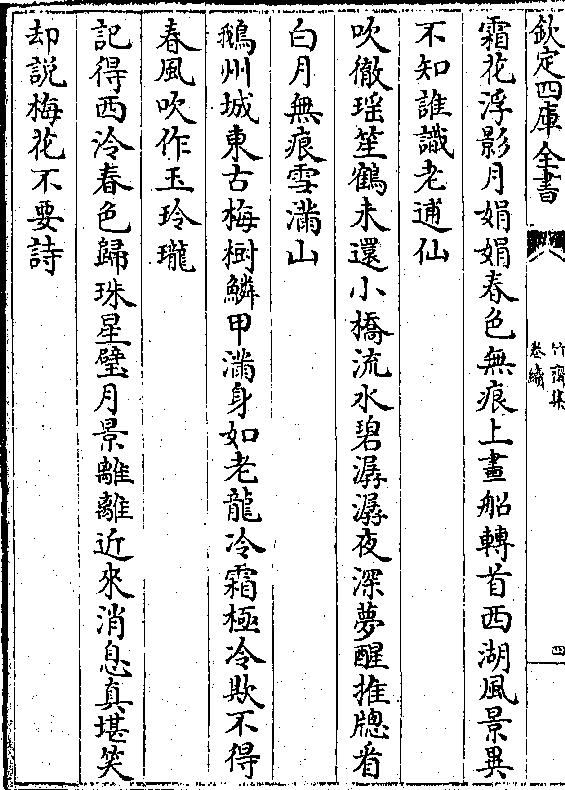 欽定四庫全書
竹齋集
卷續
四
霜花浮影月娟娟春色無痕上畫船轉首西湖風景異
不知誰識老逋仙
吹徹瑶笙鶴未還小橋流水碧潺潺夜深夢醒推牕看
白月無痕雪滿山
鵝州城東古梅樹鱗甲滿身如老龍冷霜極冷欺不得
春風吹作玉玲瓏
記得西泠春色歸珠星璧月景離離近來消息真堪笑
却説梅花不要詩